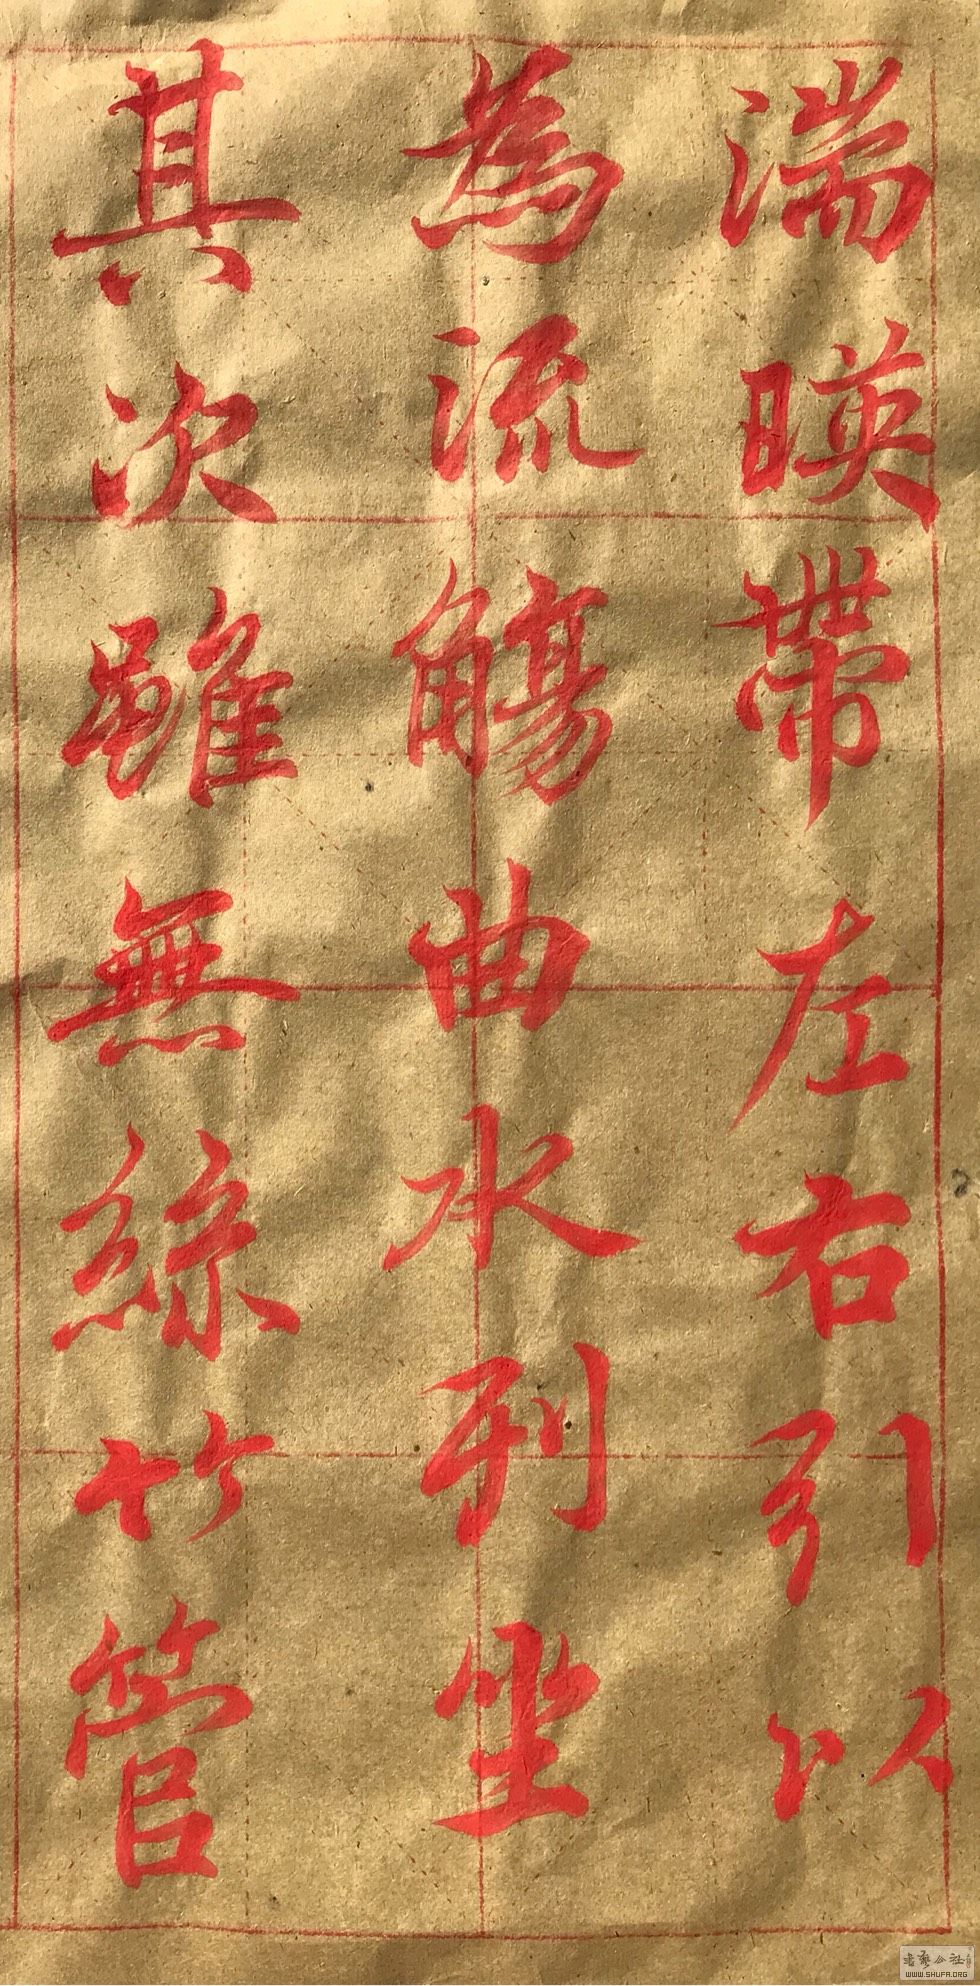 湍暎帶左右引以
為流觴曲水列坐
其次雖無絲竹管
书艺公社
WWW.SHUFA.ORG